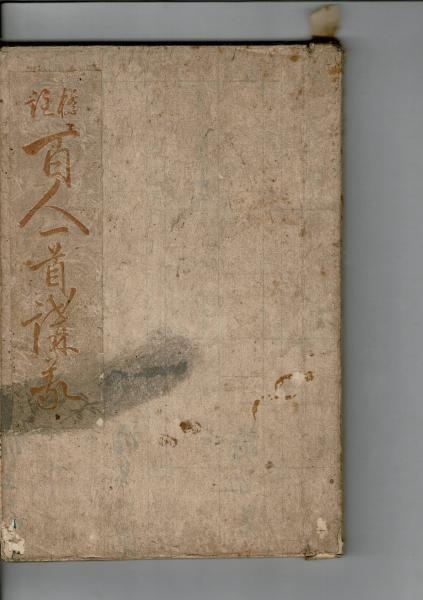 標註
百人一首講義